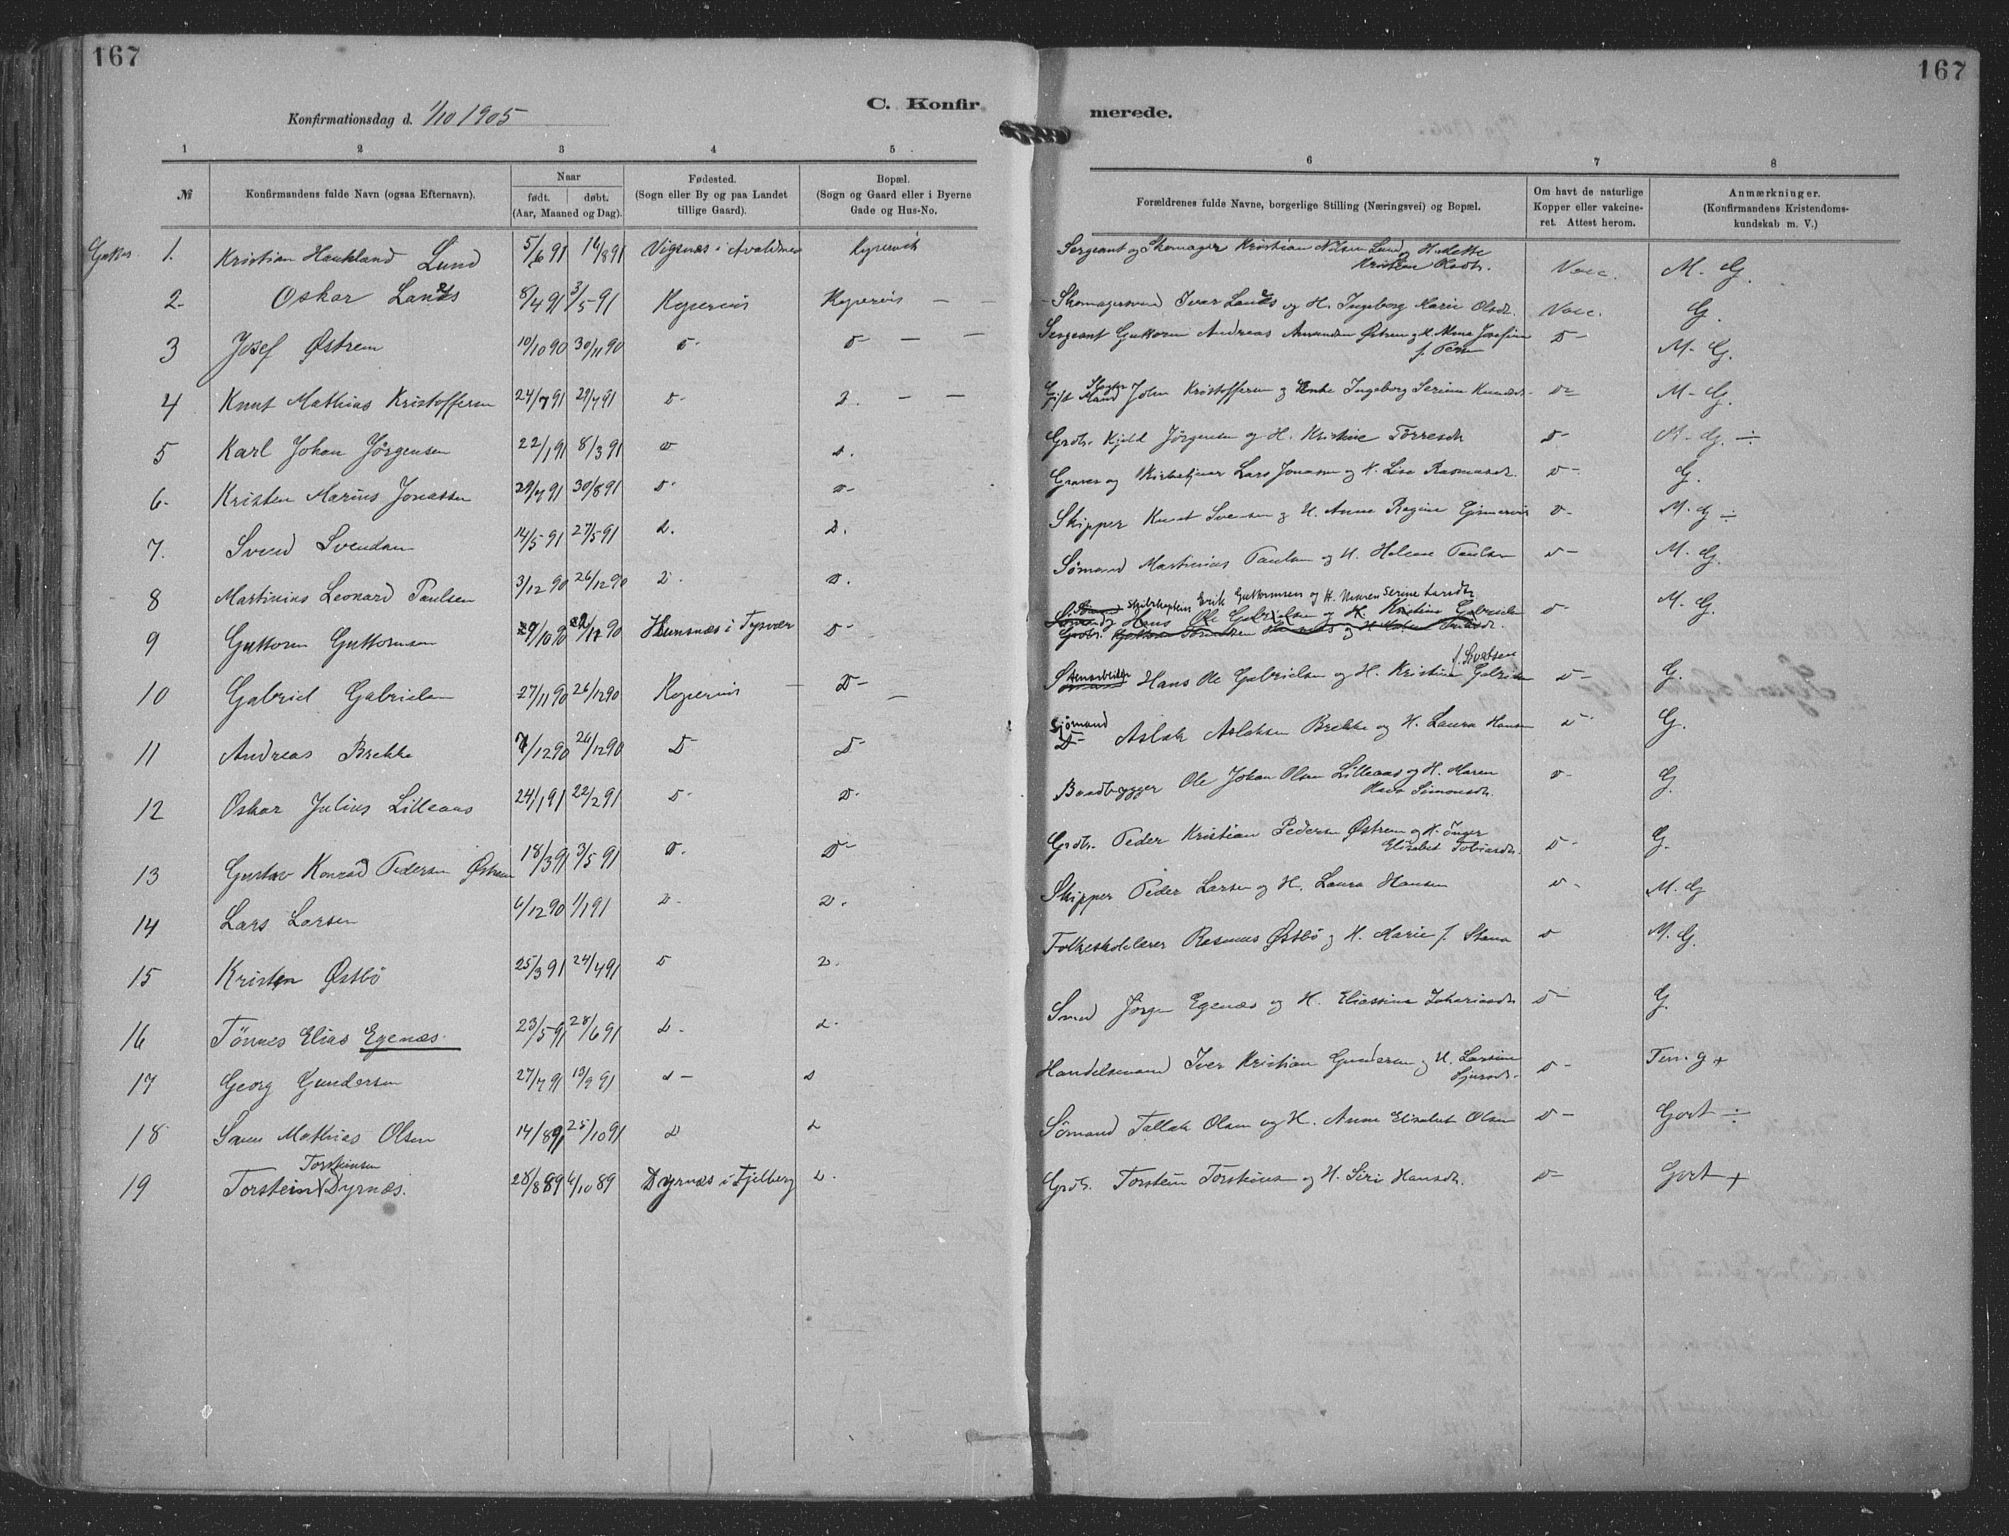 167
167
C. Konfirmerede.
Konfirmationsdag d. 1/10 1905
1 2 3 4 5 6 7 8
№ Konfirmandens fulde Navn (ogsaa Efternavn).
Naar
født. døbt.
(Aar, Maaned og Dag).
Fødested.
(Sogn eller By og paa Landet
tillige Gaard).
Bopæl.
(Sogn og Gaard eller i Byerne
Gade og Hus-No.
Forældrenes fulde Navne, borgerlige Stilling (Næringsvei) og Bopæl.
Om havt de naturlige
Kopper eller vakcine-
ret. Attest herom.
Anmærkninger.
(Konfirmandens Kristendoms-
kundskab m. V.)
Gutter 1. Kristian Haukland Lund 5/6 91 16/8 91 Vigsnæs i Avaldsnes Kopervik Sergeant og Skomager Kristian Nilsen Lund og H. Mette Kristine Vacc. M. G.
2. Oskar 8/4 91 3/5 91 Kopervik Kopervik Skomagersvend Ivar og H. Ingeborg Marie Olsdt. Vacc. G.
3 Josef Østrem 10/10 90 30/11 90 D- D- Sergeant Guttorm Andreas Amundsen Østrem og H. Anna Josefine D- M- G.
4 Knut Mathias Kristoffersen 24/7 91 29/7 91 D- D. Gift Mand John Kristoffersen og Enke Ingeborg Serine D- M- G.
5 Karl Johan Jørgensen 22/1 91 8/3 91 D D. Grdbr. Kjeld Jørgensen og H. Kristine Torresdt. D- M- G. ÷
6. Kristen Marius Jonassen 29/7 91 30/8 91 D- D- Graver og Kirketjener Lars Jonasen og H. Lisa Rasmusdt. D- G.
7. Svend Svendsen 14/5 91 27/5 91 D. D. Skipper Knut Svensen og H. Anna Regine D- M. G ÷
8 Martinius Leonard Paulsen 3/12 90 26/12 90 D. D. Sømand Martinius Paulsen og H. Helene Paulsen D- M. G.
9 Guttorm Guttormsen 29/10 90 Hunsnæs i Tysvær D- Erik Guttormsen og H. Maren Serine Larsdt. D- M. G.
10 Gabriel Gabrielsen 27/11 90 26/12 90 Kopervik D- Hans Ole Gabrielsen og H. Kristine Gabrielsen D- G.
11 Andreas Brekke 7/12 90 26/12 90 D- D- Sjømand Aslak Aslaksen Brekke og H. Laura Hansen D- G.
12 Oskar Julius Lilleaas 24/1 91 22/2 91 D- D- Baadbygger Ole Johan Olsen Lilleaas og H. Maren Simonsdt. D- G.
13 Gustav Konrad Pedersen Østrem 18/3 91 3/5 91 D. D- Grdbr. Peder Kristian Pedersen Østrem og H. Inger Elisabet Tobiasdt. D- G.
14 Lars Larsen 6/12 90 1/1 91 D- D. Skipper Peder Larsen og H. Laura Hansen D- M. G
15 Kristen Østbö 25/3 91 24/4 91 D D. Folkeskolelærer Rasmus Østbö og H. Marie f. Stava D M. G.
16 Tönnes Elias Egenæs. 23/5 91 28/6 91 D- D- Sömd Jörgen Egenæs og H. Eliassine Zakariasdt. D- G.
17 Georg Gundersen 27/7 91 13/9 91 D- D Handelsmand Iver Kristian Gundersen og H. Larsine Sjursdt. D- Tem. g +
18 Mathias Olsen 14/8 91 25/10 91 D D Sømand Tallak Olsen og H. Anne Elisabet Olsen D- Gort ÷
19 Torstein Torsteinsen Dyrnæs. 28/8 89 6/10 89 Dyrnæs i Fjelberg D. Grdbr. Torstein Torsteinsen og H. Siri Hansdt. D- Gort +